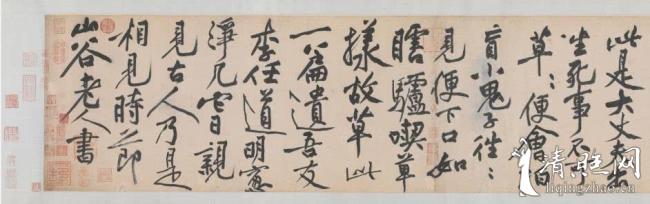 此是大丈夫出
生死事不可
草〻便會拍
盲小鬼子往〻
見便下口如
瞎驢喫草
樣故草此
一篇遺吾友
李任道明窓
淨几它日親
見古人乃是
相見時節
山谷老人書